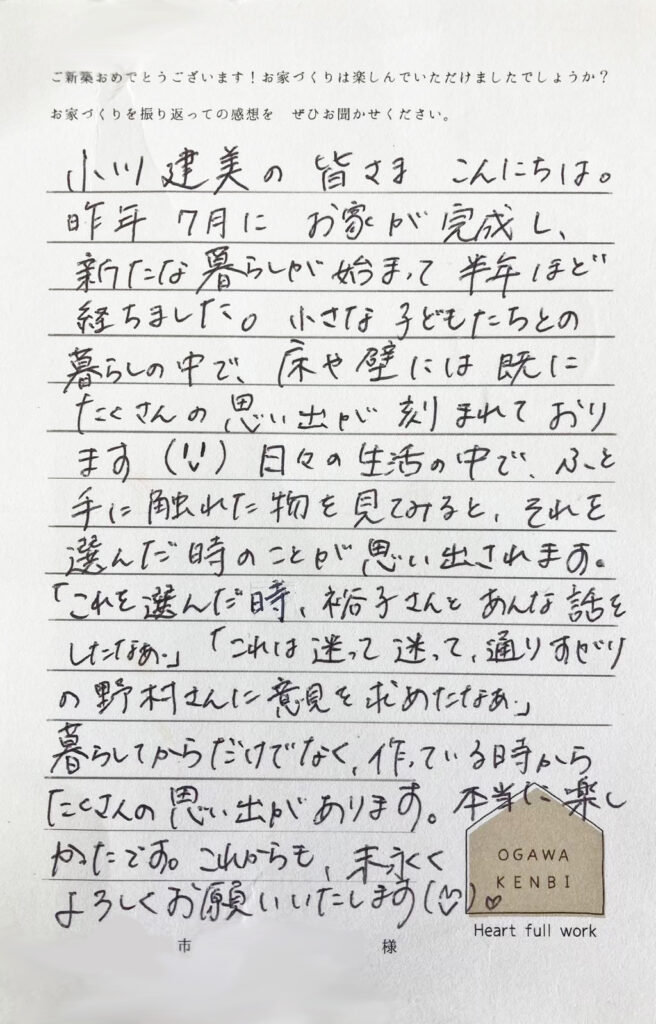 ご新築おめでとうございます！お家づくりは楽しんでいただけましたでしょうか？
お家づくりを振り返っての感想を　ぜひお聞かせください。
小川建美の皆さま　こんにちは。
昨年7月に　お家が完成し、
新たな暮らしが始まって半年ほど
経ちました。小さな子どもたちとの
暮らしの中で、床や壁には既に
たくさんの思い出が刻まれており
ます(¨)日々の生活の中で、ふと
手に触れた物を見てみると、それを
選んだ時のことが思い出されます。
「これを選んだ時、裕子さんとあんな話を
したなぁ。」「これは迷って迷って、通りすがり
の野村さんに意見を求めたなぁ。」
暮らしてからだけでなく、作っている時から
たくさんの思い出があります。本当に楽し
かったです。これからも、末永く
よろしくお願いいたします(¨)♡。
OGAWA
KENBI
Heart full work
市　様